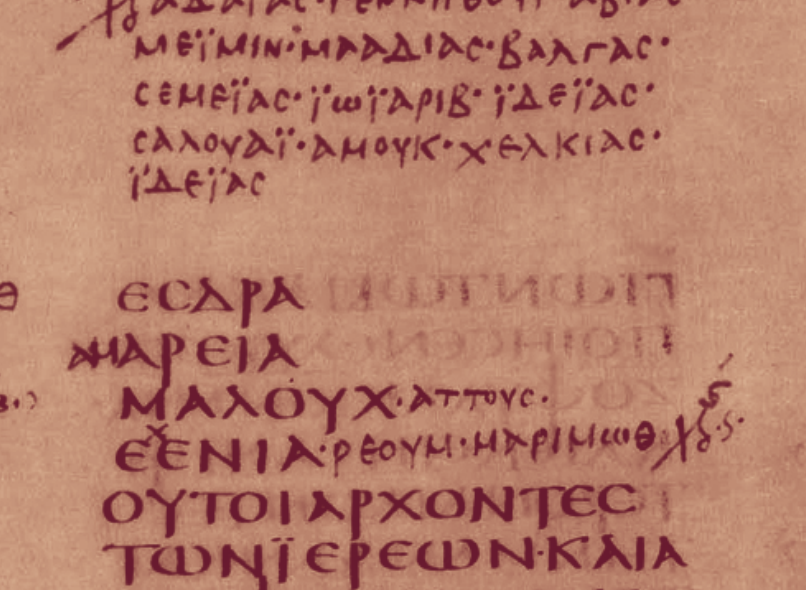 ΜΕΪΜΙΝ·ΜΑΑΔΙΑΣ·ΒΑΛΓΑΣ·
ϹΕΜΕΪΑϹ·ΪΩΪΑΡΙΒ·ΪΔΕΪΑϹ·
ϹΑΛΟΥΑΪ·ΑΜΟΥΚ·ΧΕΛΚΙΑϹ·
ΪΔΕΪΑϹ
ΕϹΔΡΑ
ΑΜΑΡΕΙΑ
ΜΑΛΟΥΧ·ΑΤΤΟΥϹ·
ΕΧΕΝΙΑ·ΡΕΟΥΜ·ΜΑΡΙΜΩΘ
ΟΥΤΟΙΑΡΧΟΝΤΕϹ
ΤΩΝΪΕΡΕΩΝ·ΚΑΙΑ